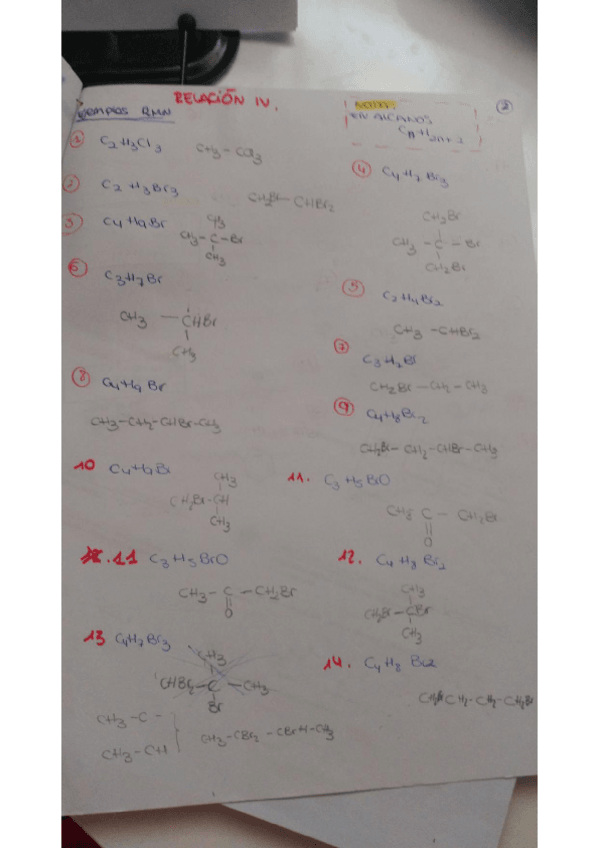 RELACIÓN IV.
EJEMPLOS RMN
NOTA:
EN ALCANOS
CnH2n+2
2
1 C2H3Cl3
CH3-CCl3
4 C4H7Br3
CH2Br
CH3-C-Br
CH2Br
2 C2H3Br3
CH2Br-CHBr2
3 C4H9Br
CH3
CH3-C-Br
CH3
5 C2H4Br2
CH3-CHBr2
6 C3H7Br
CH3-CHBr
CH3
7 C3H7Br
CH2Br-CH2-CH3
8 C4H9Br
CH3-CH2-CHBr-CH3
9 C4H8Br2
CH2Br-CH2-CHBr-CH3
10 C4H9Br
CH3
CH2Br-CH
CH3
11. C3H5BrO
CH3 C - CH2Br
O
11 C3H5BrO
CH3-C-CH2Br
O
12. C4H8Br2
CH3
CH2Br-CBr
CH3
13 C4H7Br3
CH3
CHBr2-C-CH3
Br
CH3-C-
CH3-CH
CH3-CBr2-CBrH-CH3
14. C4H8Br2
CH2-CH2-CH2Br